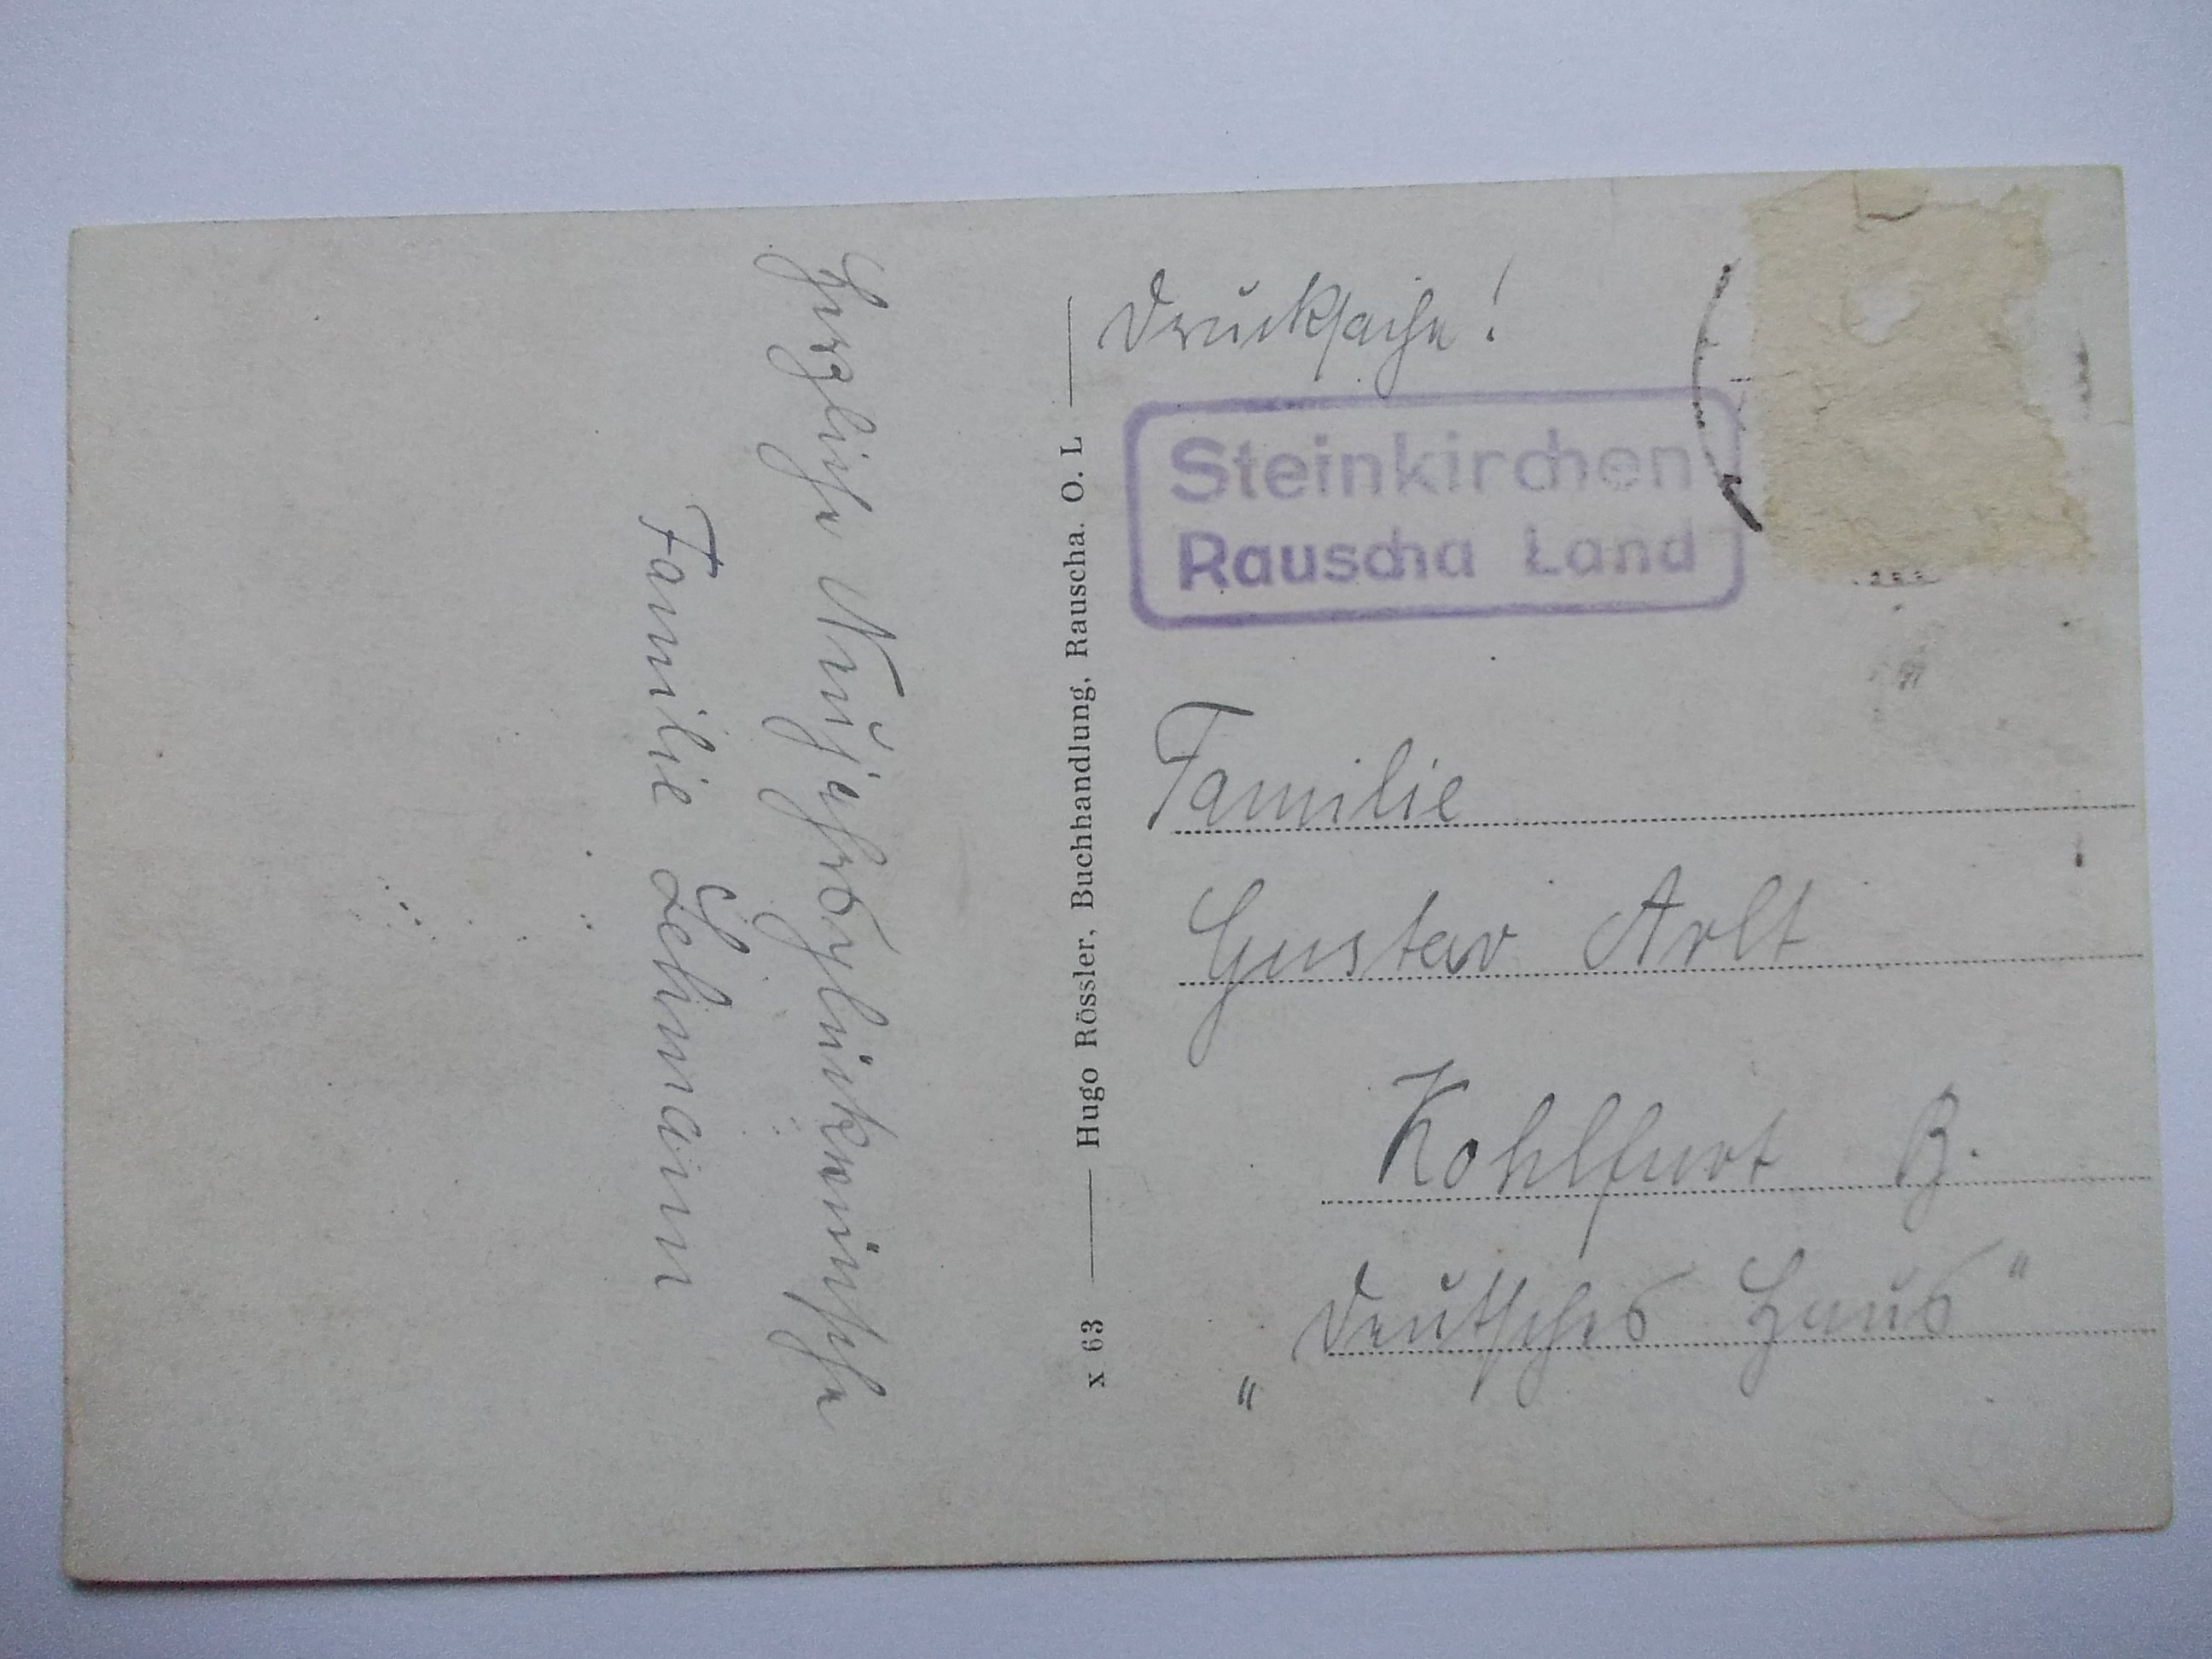 Herzliche Neujahrsglückwünsche
Familie Lehmann
x 63 Hugo Rössler, Buchhandlung, Rauscha. O. L
Drucksache!
Steinkirchen
Rauscha Land
Familie
Gustav Arlt
Kohlfurt B.
"Deutsches Haus"